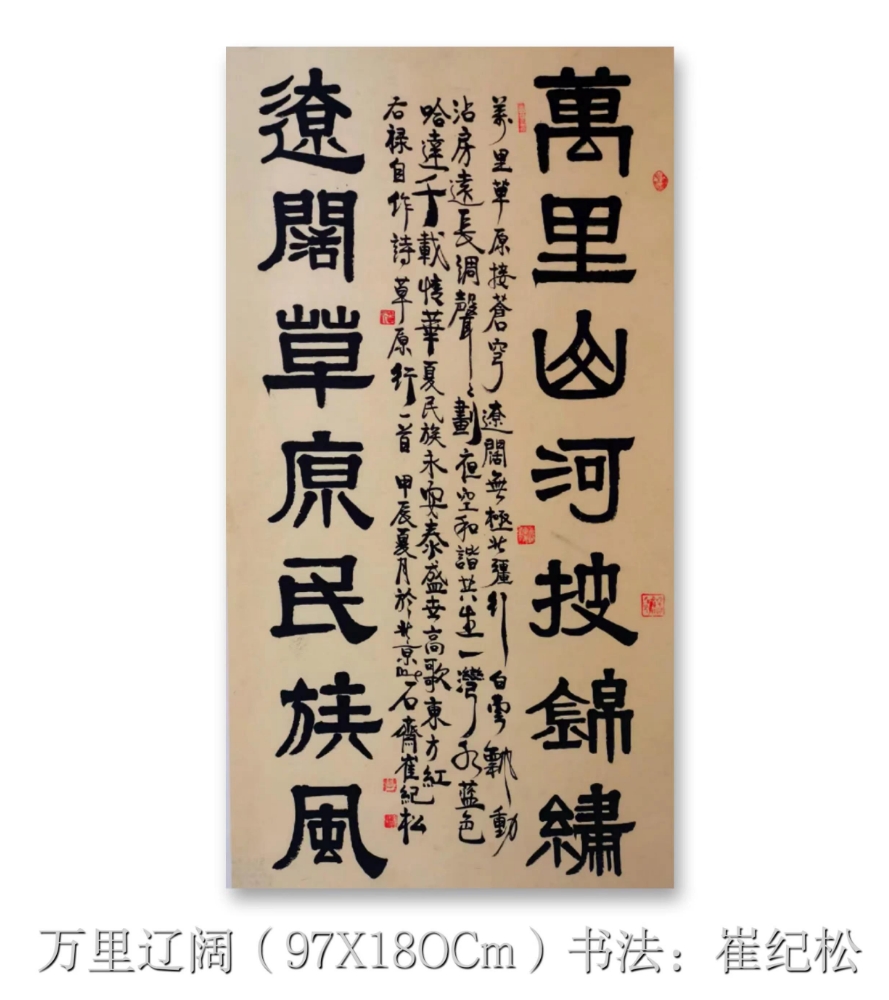 萬里山河披錦繡
萬里草原接蒼穹遼闊無極北疆行白雲飄動
沾房遠長調聲〻劃夜空和諧共生一灣水蓝色
哈達千載情華夏民族永安泰盛世高歌東方紅
右禄自作詩草原行一首甲辰夏月於北京石齋崔紀松
遼闊草原民族風
万里辽阔（97X180Cm）书法：崔纪松